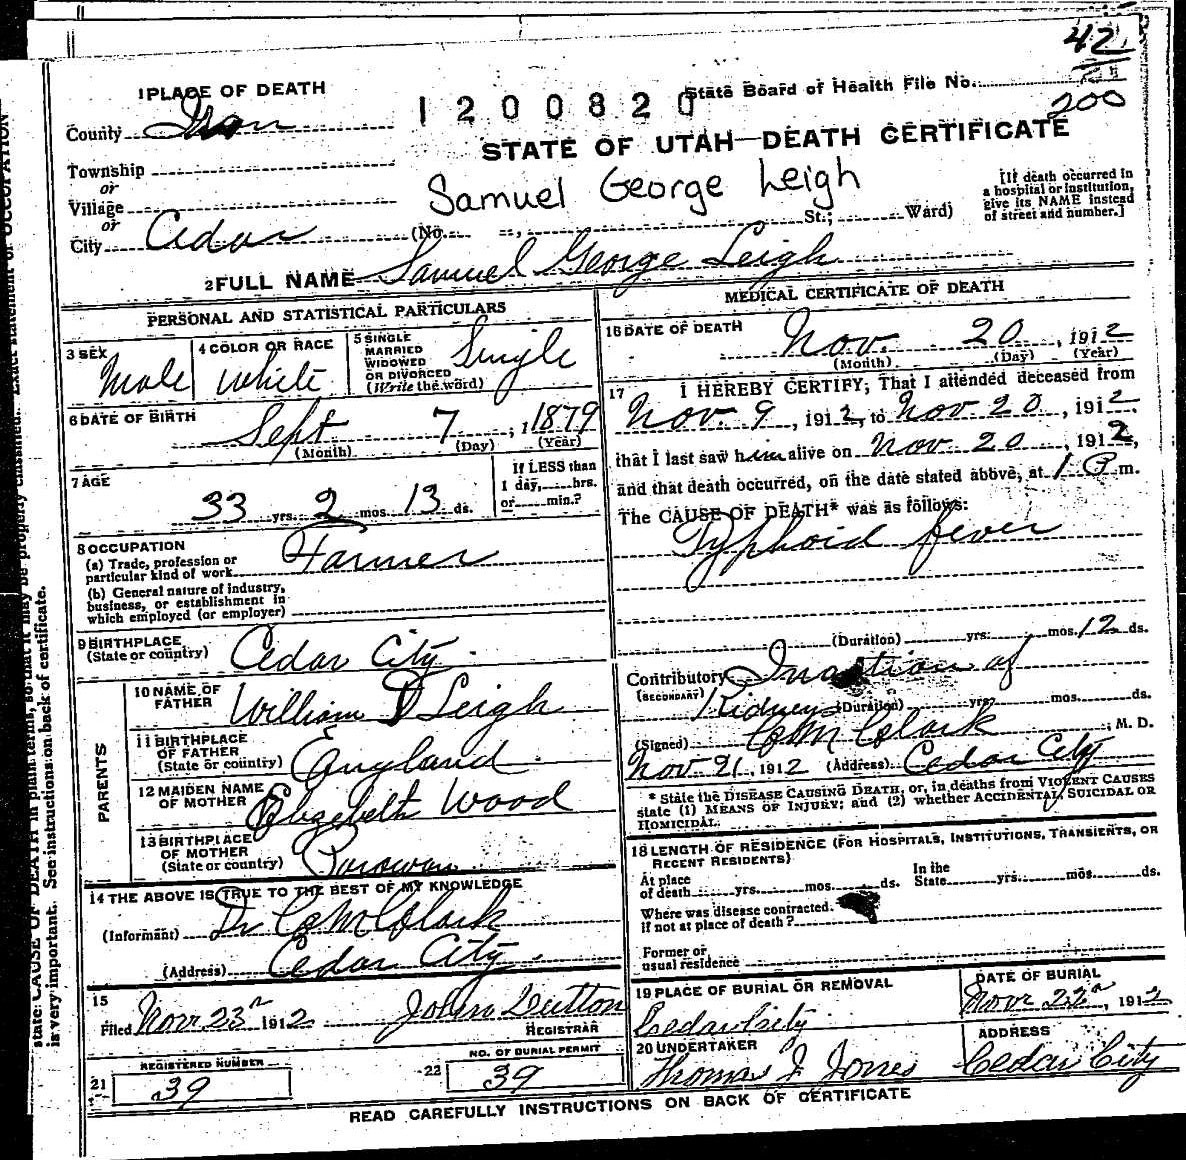 42
200
1 PLACE OF DEATH
State Board of Health File No.
1200820
County Iron
STATE OF UTAH—DEATH CERTIFICATE
Township
or
Village
or
City Cedar (No. St.; Ward)
Samuel George Leigh
[If death occurred in
a hospital or institution,
give its NAME instead
of street and number.]
2 FULL NAME Samuel George Leigh
PERSONAL AND STATISTICAL PARTICULARS
3 SEX
Male
4 COLOR OR RACE
White
5 SINGLE
MARRIED
WIDOWED
OR DIVORCED
(Write the word)
Single
6 DATE OF BIRTH
Sept 7, 1879
(Month) (Day) (Year)
7 AGE
33 yrs. 2 mos. 13 ds.
If LESS than
1 day, hrs.
or min.?
8 OCCUPATION
(a) Trade, profession or
particular kind of work Farmer
(b) General nature of industry,
business, or establishment in
which employed (or employer)
9 BIRTHPLACE
(State or country) Cedar City
PARENTS
10 NAME OF
FATHER William Leigh
11 BIRTHPLACE
OF FATHER
(State or country) England
12 MAIDEN NAME
OF MOTHER Elizabeth Wood
13 BIRTHPLACE
OF MOTHER
(State or country) Parowan
14 THE ABOVE IS TRUE TO THE BEST OF MY KNOWLEDGE
(Informant) Dr Clark
(Address) Cedar City
15
Filed Nov 23 1912 John Dutton
REGISTRAR
21 REGISTERED NUMBER
39
22 NO. OF BURIAL PERMIT
39
MEDICAL CERTIFICATE OF DEATH
16 DATE OF DEATH
Nov. 20, 1912
(Month) (Day) (Year)
17 I HEREBY CERTIFY, That I attended deceased from
Nov. 9, 1912, to Nov 20, 1912,
that I last saw him alive on Nov 20, 1912,
and that death occurred, on the date stated above, at 1 P m.
The CAUSE OF DEATH* was as follows:
Typhoid fever
(Duration) yrs. mos. 12 ds.
Contributory of
(SECONDARY) Kidneys (Duration) yrs. mos. ds.
(Signed) Clark, M. D.
Nov 21, 1912 (Address) Cedar City
* State the DISEASE CAUSING DEATH, or, in deaths from VIOLENT CAUSES
state (1) MEANS OF INJURY; and (2) whether ACCIDENTAL, SUICIDAL OR
HOMICIDAL.
18 LENGTH OF RESIDENCE (FOR HOSPITALS, INSTITUTIONS, TRANSIENTS, OR
RECENT RESIDENTS)
At place
of death yrs. mos. ds.
In the
State yrs. mos. ds.
Where was disease contracted.
if not at place of death?
Former or
usual residence
19 PLACE OF BURIAL OR REMOVAL
Cedar City
DATE OF BURIAL
Nov 22, 1912
20 UNDERTAKER
Thomas J Jones
ADDRESS
Cedar City
READ CAREFULLY INSTRUCTIONS ON BACK OF CERTIFICATE
state CAUSE OF DEATH in plain terms, so that it may be properly classified. Exact statement of OCCUPATION
is very important. See instructions on back of certificate.